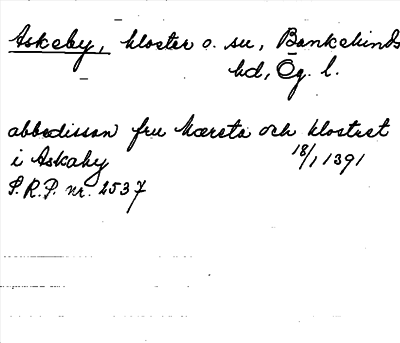 Askeby, kloster o. sn, Bankekinds
hd, Ög. l.
abbedissan fru Mæreta och klostret
i Askaby 18/1 1391
S.R.P. nr. 2537